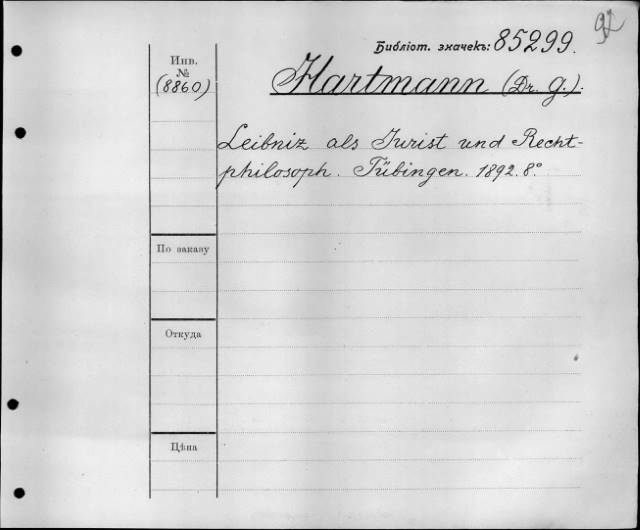 92
Библіот. значекъ: 85299.
Инв.
№
(8860)
Hartmann (Dr. G.).
Leibniz als Jurist und Recht-
philosoph. Tübingen. 1892. 8°
По заказу
Откуда
Цѣна